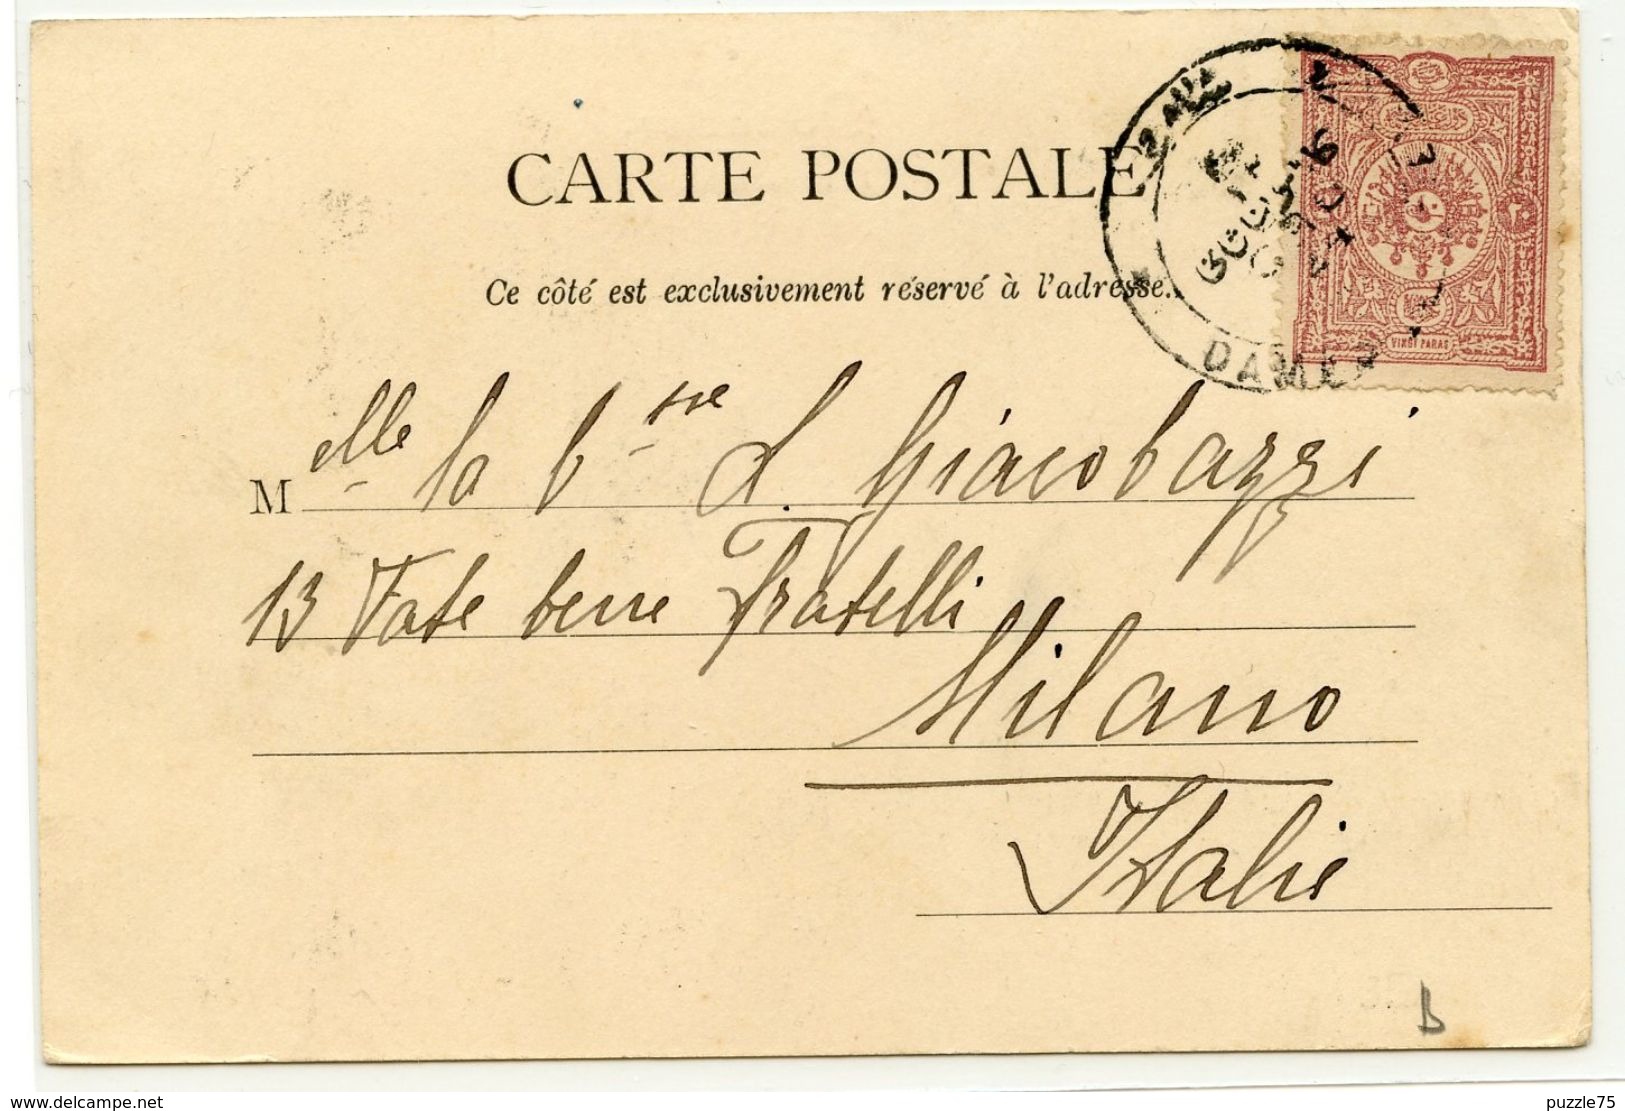 CARTE POSTALE
Ce côté est exclusivement réservé à l'adresse.
VINGT PARAS
DAMAS
Melle la bsse d. Giacobazzi
13 Fate bene Fratelli
Milano
Italie
B
www.delcampe.net
puzzle75